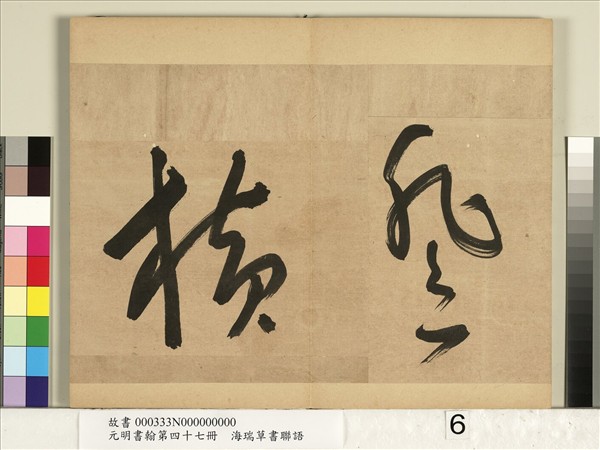 積
故書 000333N000000000
元明書翰第四十七冊　海瑞草書聯語
6